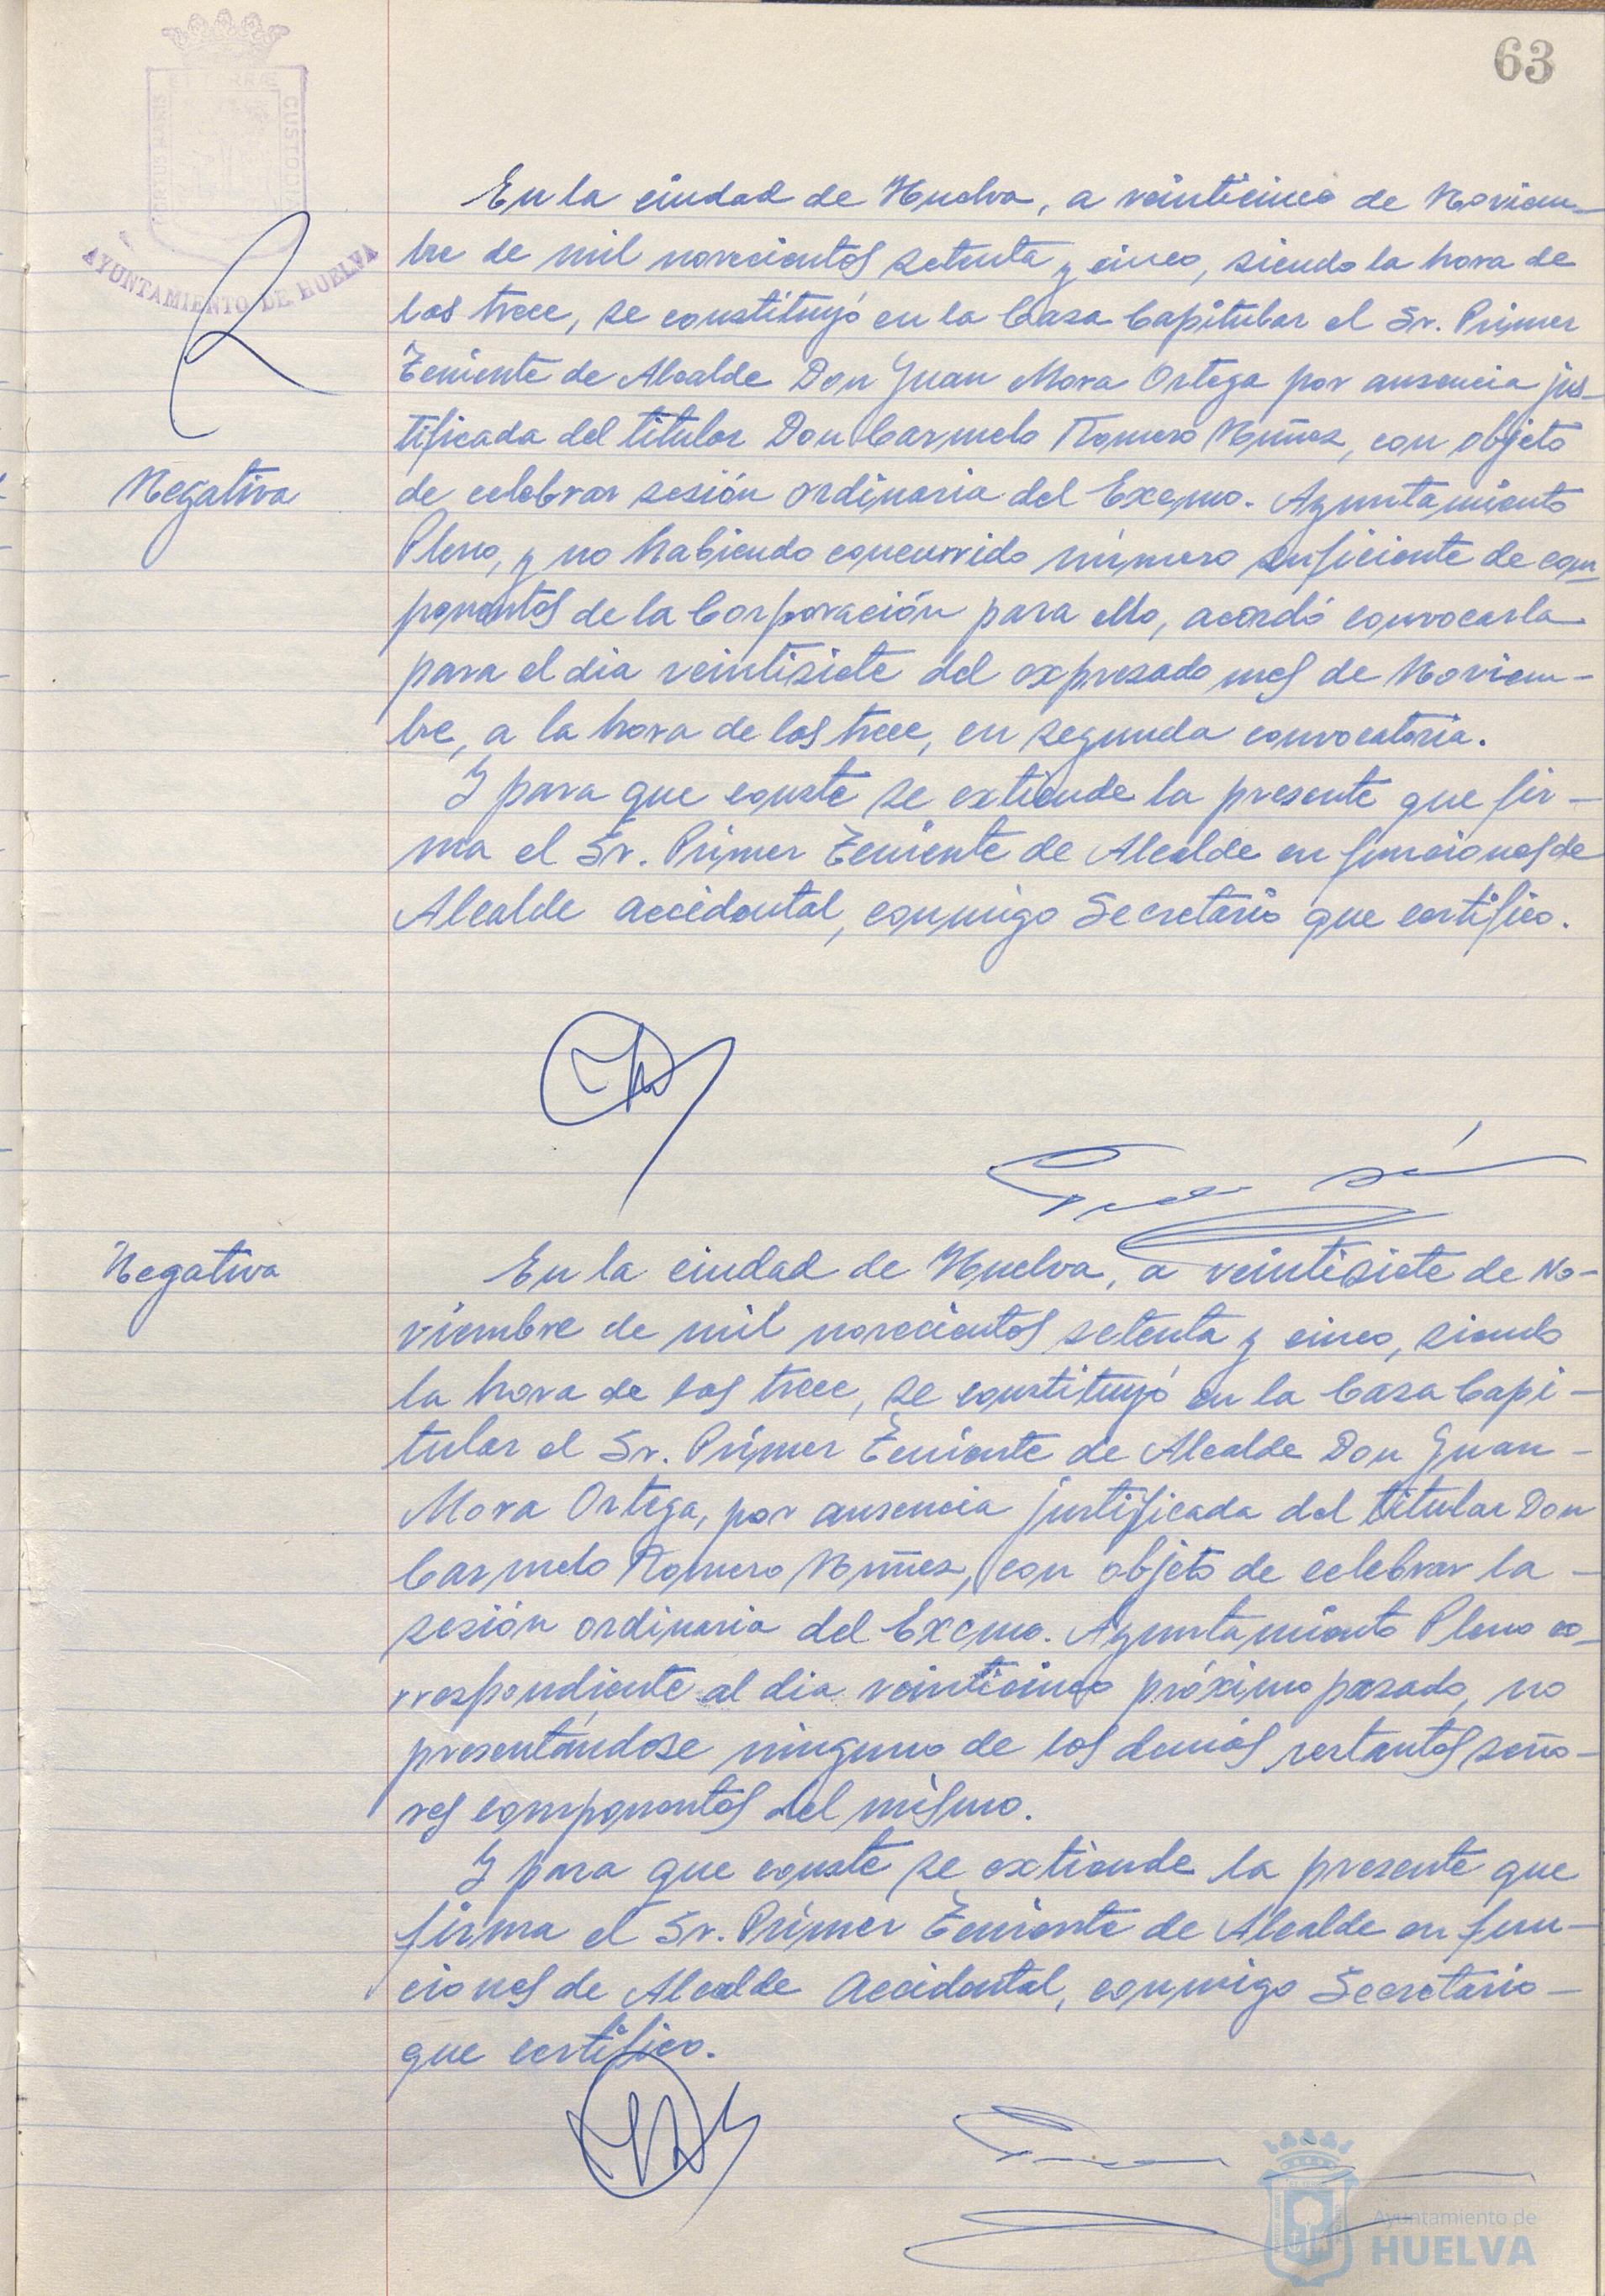 63
PORTUS MARIS
ET TERRÆ
CUSTODIA
AYUNTAMIENTO DE HUELVA
En la ciudad de Huelva, a veinticinco de Noviem-
bre de mil novecientos setenta y cinco, siendo la hora de
las trece, se constituyó en la Casa Capitular el Sr. Primer
Teniente de Alcalde Don Juan Mora Ortega por ausencia jus-
tificada del titular Don Carmelo Romero Núñez, con objeto
Negativa
de celebrar sesión ordinaria del Excmo. Ayuntamiento
Pleno, y no habiendo concurrido número suficiente de com-
ponentes de la Corporación para ello, acordó convocarla
para el dia veintisiete del expresado mes de Noviem-
bre, a la hora de las trece, en segunda convocatoria.
Y para que conste se extiende la presente que fir-
ma el Sr. Primer Teniente de Alcalde en funciones de
Alcalde accidental, conmigo Secretario que certifico.
Negativa
En la ciudad de Huelva, a veintisiete de No-
viembre de mil novecientos setenta y cinco, siendo
la hora de las trece, se constituyó en la Casa Capi-
tular el Sr. Primer Teniente de Alcalde Don Juan -
Mora Ortega, por ausencia justificada del titular Don
Carmelo Romero Núñez, con objeto de celebrar la -
sesión ordinaria del Excmo. Ayuntamiento Pleno co-
rrespondiente al dia veinticinco próximo pasado, no
presentándose ninguno de los demás restantes seño-
res componentes del mismo.
Y para que conste se extiende la presente que
firma el Sr. Primer Teniente de Alcalde en fun-
ciones de Alcalde Accidental, conmigo Secretario -
que certifico.
Ayuntamiento de
HUELVA